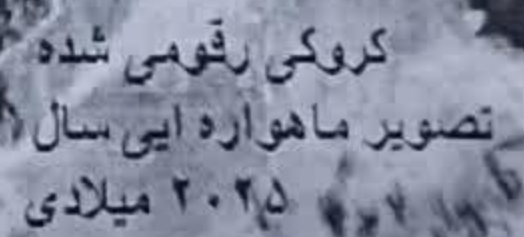 کروکی رقومی شده
تصویر ماهواره ایی سال
۲۰۲۵ میلادی